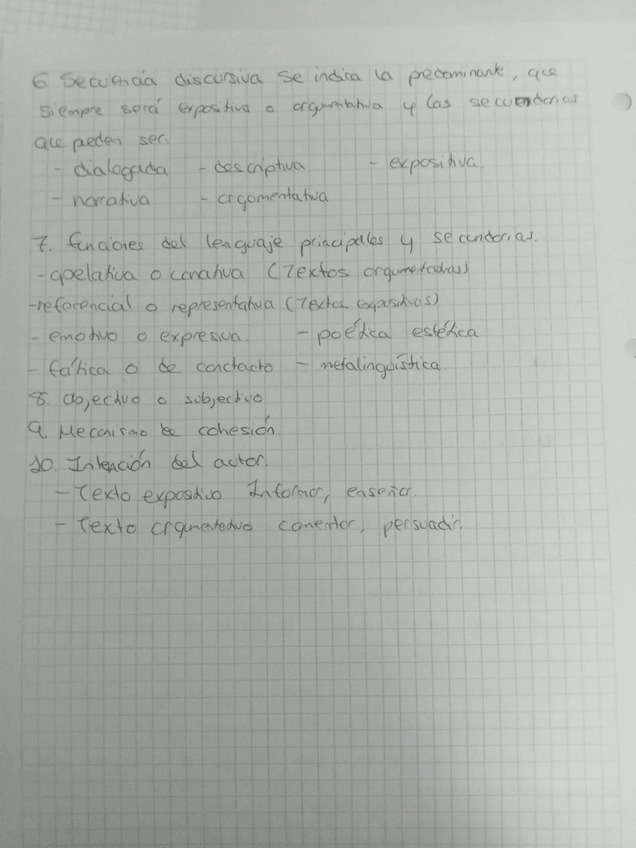 6. Secuencia discursiva se indica la predominante, que
siempre será expositiva o argumentativa y las secuenderias
que peden ser.
- dialogada - descriptiva - expositiva.
- narrativa - argomentativa
7. funciones del lenguaje principales y secundarias.
- apelativa o conativa (Textos argumentativos)
- referencial o representativa (Textos expositivos)
- emotivo o expresiva. - poética estética
- fática o de conctacto - metalingüística.
8. objectivo o subjectivo
9. Mecanismo de cohesión.
10. Intención del autor.
- Texto expositivo Informar, enseñar.
- Texto argumentativo comentar, persuadir.